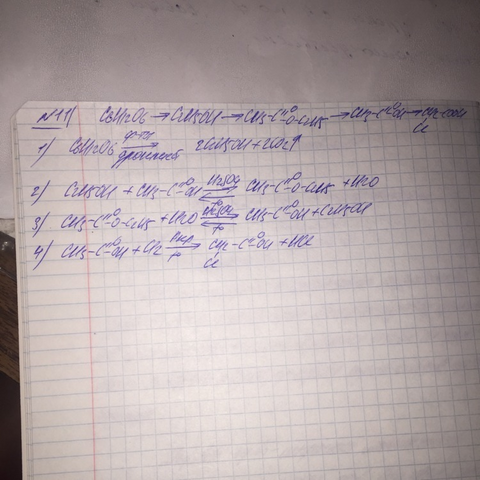 №11) C6H12O6 → C2H5OH → CH3-C=O-O-C2H5 → CH3-C=O-OH → CH2-COOH
Cl
1) C6H12O6 → ф-ты дрожжей 2C2H5OH + 2CO2↑
2) C2H5OH + CH3-C=O-OH ⇄ H2SO4 CH3-C=O-O-C2H5 + H2O
3) CH3-C=O-O-C2H5 + H2O ⇄ H2SO4 t CH3-C=O-OH + C2H5OH
4) CH3-C=O-OH + Cl2 → Pкр t CH2-C=O-OH + HCl
Cl